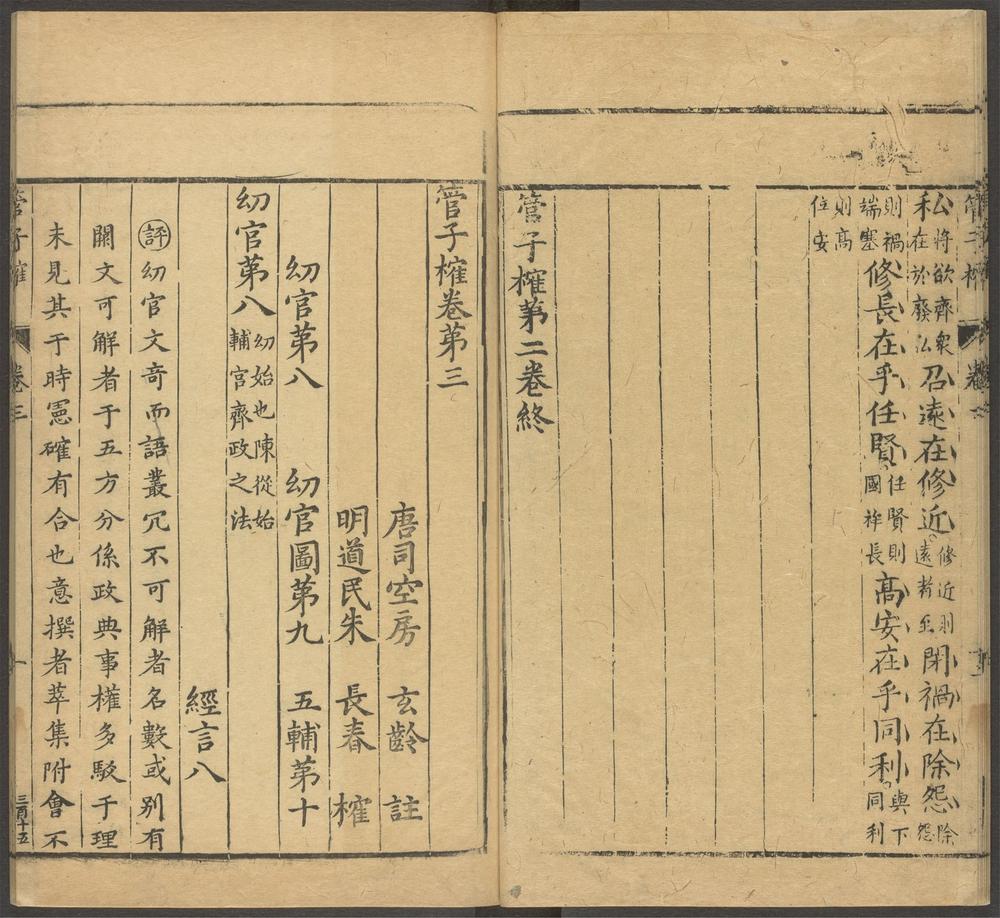 私將欲齊衆在於廢公召遠在修近修近則遠者至閉禍在除怨除怨
則禍端塞修長在乎任賢任賢則國祚長高安在乎同利與下同利
則高位安
管子榷第二卷終
管子榷卷第三
唐司空房 玄齡 註
明道民朱 長春 榷
幼官第八 幼官圖第九 五輔第十
幼官第八幼始也陳從始輔官齊政之法
經言八
評幼官文奇而語叢冗不可解者名數或别有
闕文可解者于五方分係政典事權多駁于理
未見其于時憲確有合也意撰者萃集附會不
管子榷 卷三 三百十五